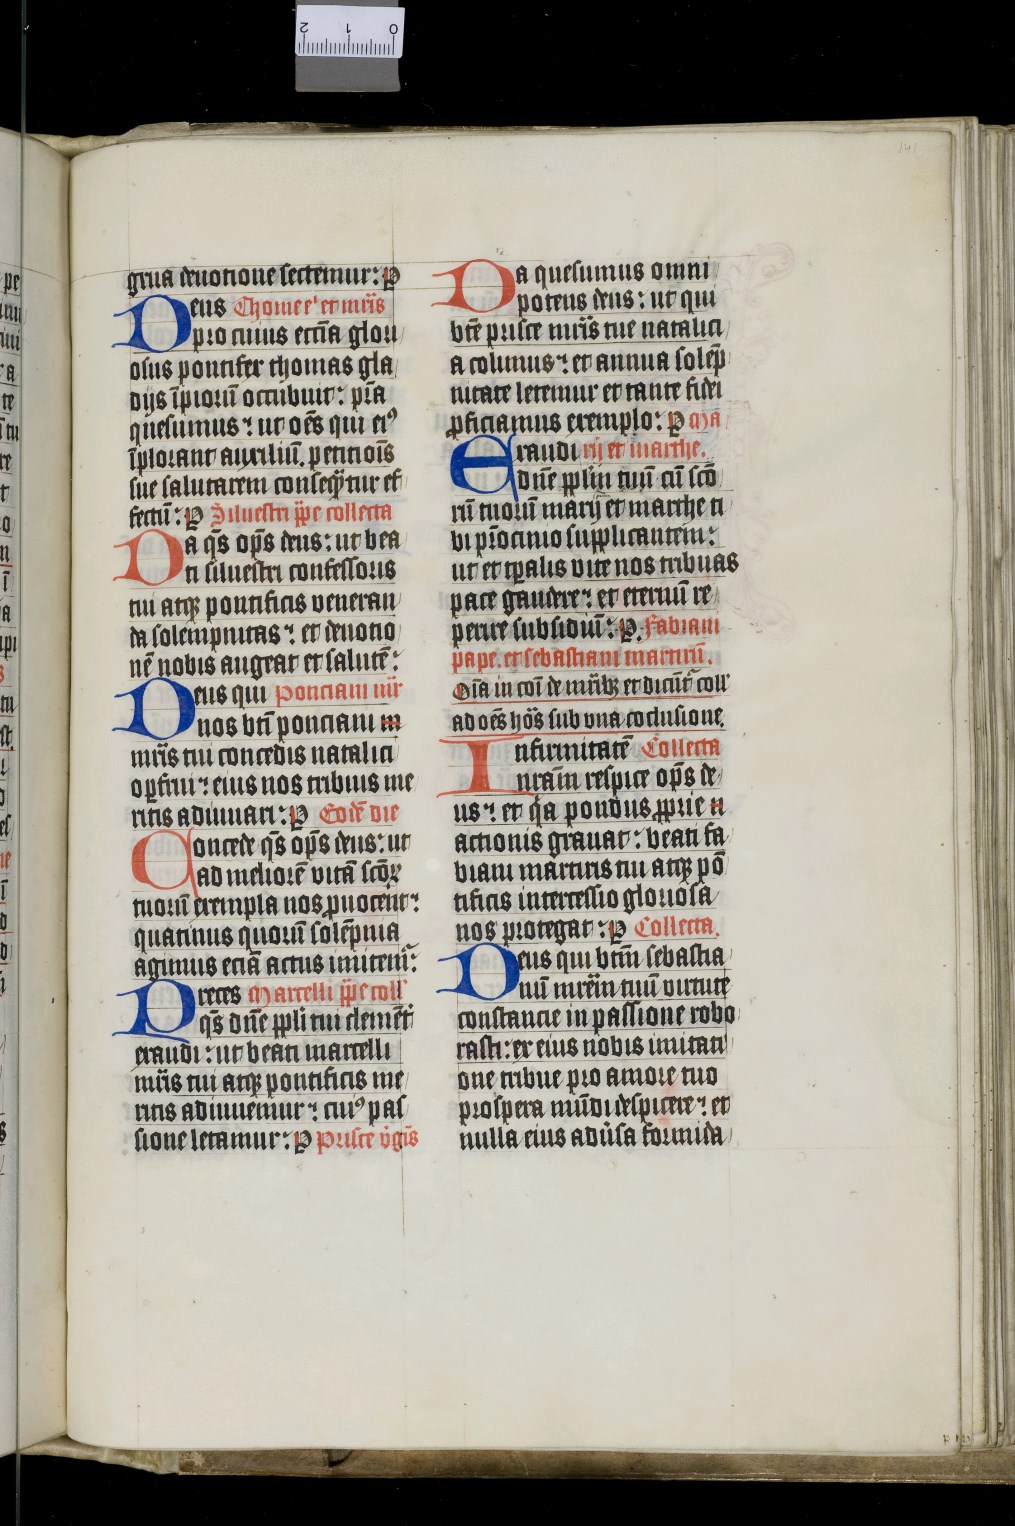 grua deuotione sectemur: P
Deus Thome ep̄i et mr̄is
pro cuius eccl̄ia glori
osus pontifex thomas gla
dijs īpiorū occubuit: pr̄a
quesumus: ut oēs qui eiꝰ
īplorant auxiliū. petitiōis
sue salutarem consequātur ef
fectū: P Siluestri ꝓpe collecta
Da qs̄ ops̄ deus: ut bea
ti siluestri confessoris
tui atqꝫ pontificis veneran
da solempnitas: et deuotio
nē nobis augeat et salutē:
Deus qui Ponciani mr̄
nos bt̄i ponciani m
mr̄is tui concedis natalici
o ꝑfrui: eius nos tribuis me
ritis adiuuari: P Eodē die
Concede qs̄ ops̄ deus: ut
ad meliorē vitā scōꝝ
tuorū exempla nos ꝓuocent:
quatinus quorū solēpnia
agimus eciā actus imitemur:
Preces Marcelli ꝓpe coll
qs̄ dn̄e ppl̄i tui clement̄
exaudi: ut beati marcelli
mr̄is tui atqꝫ pontificis me
ritis adiuuemur: cuiꝰ pas
sione letamur: P Prisce v̇gīs
Da quesumus omni
potens deus: ut qui
bt̄e prisce mr̄is tue natalici
a colimus: et annua solēp
nitate letemur et tante fidei
ꝓficiamus exemplo: P Ma
Exaudi rij et marthe.
dn̄e ppl̄m tuū cū scō
rū tuorū marij et marthe ti
bi pr̄ocinio supplicantem:
ut et tp̄alis vite nos tribuas
pace gaudere: et eternū re
perire subsidiū: P. Fabiani
pape. et sebastiani martirū.
Oīa in coī de mr̄ibꝫ et dicūt̄ coll
ad oēs hōs sub vna cōclusione.
Infirmitatē Collecta
nr̄am respice ops̄ de
us: et qa pondus ꝓprie a
actionis grauat: beati fa
biani martiris tui atqꝫ pō
tificis intercessio gloriosa
nos protegat: P Collecta.
Deus qui bt̄m sebastia
nū mr̄em tuū virtute
constancie in passione robo
rasti: ex eius nobis imitati
one tribue pro amore tuo
prospera mūdi despicere: et
nulla eius adu̇sa formida